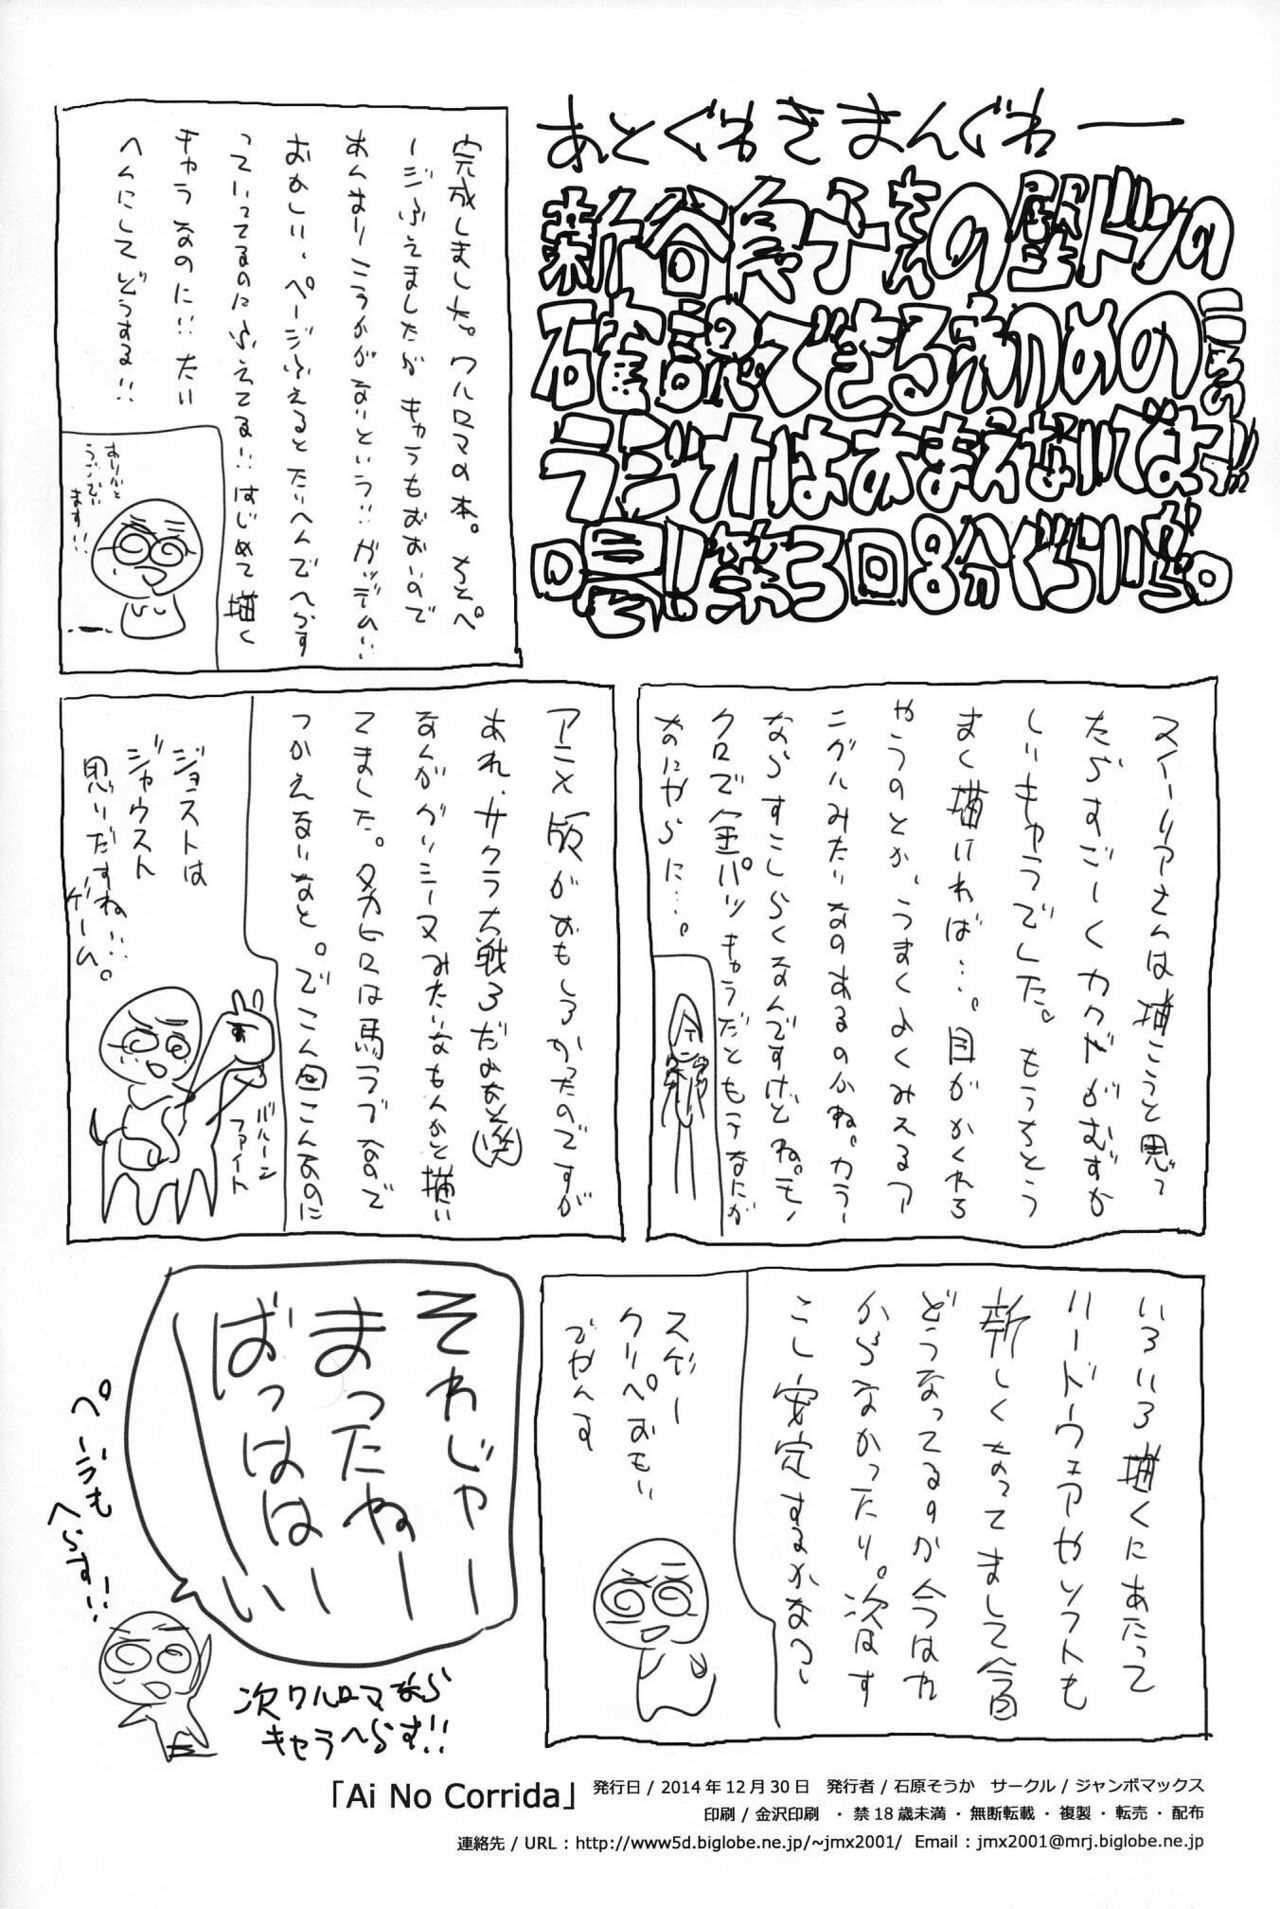 あとぐわきまんぐわー
新谷良子真の壁ドンの
確認できる初めの
ラジオはあまえないでよっ!!
喝!!第3回8分ぐらい
完成しました。ワルロマの本。ちとペ
ージふえましたがキャラもおおいので
あんまりこうかがないという!!ガッデム!!
おかしい、ページふえるとたいへんでへらす
っていってるのにふえてる!!はじめて描く
キャラなのに!!たい
へんにしてどうする!!
ありがと
うございい
ます!!
スイーリアさんは描こうと思っ
たらすごーくカクゲがむずか
しいキャラでした。もうちとう
まく描ければ…。目がかくれる
やうのとか、うまくよくみえるア
ングルみたいなのあるのかね。カラー
ならすこしらくなんですけどね。モノ
クロで金パツキャラだともうなにが
なにやらに…。
アニメ版がおもしろかったのですが
あれ、サクラ大戦3だよなと(笑)
なんかグリシーヌみたいなもんかと描い
てました。タカヒロは馬ラブなので
つかえないなと。でこん回こんなのに
ジョストは
ジャウスト
思いだすね…
ゲーム。
バルーン
ファイト
いろいろ描くにあたって
ハードウェアやソフトも
新しくなってまして今回
どうなってるすか今はわ
からなかったり。次はす
こし安定するかなっー
スゲー
クリペおもい
でやんす
それじゃー
まったねー
ばっははーい
ページも
へらす!!
次ワルロマなら
キャラへらす!!
「Ai No Corrida」 発行日 / 2014 年 12 月 30 日　発行者 / 石原そうか　サークル / ジャンボマックス
印刷 / 金沢印刷　・禁 18 歳未満・無断転載・複製・転売・配布
連絡先 / URL : http://www5d.biglobe.ne.jp/~jmx2001/　Email : jmx2001@mrj.biglobe.ne.jp